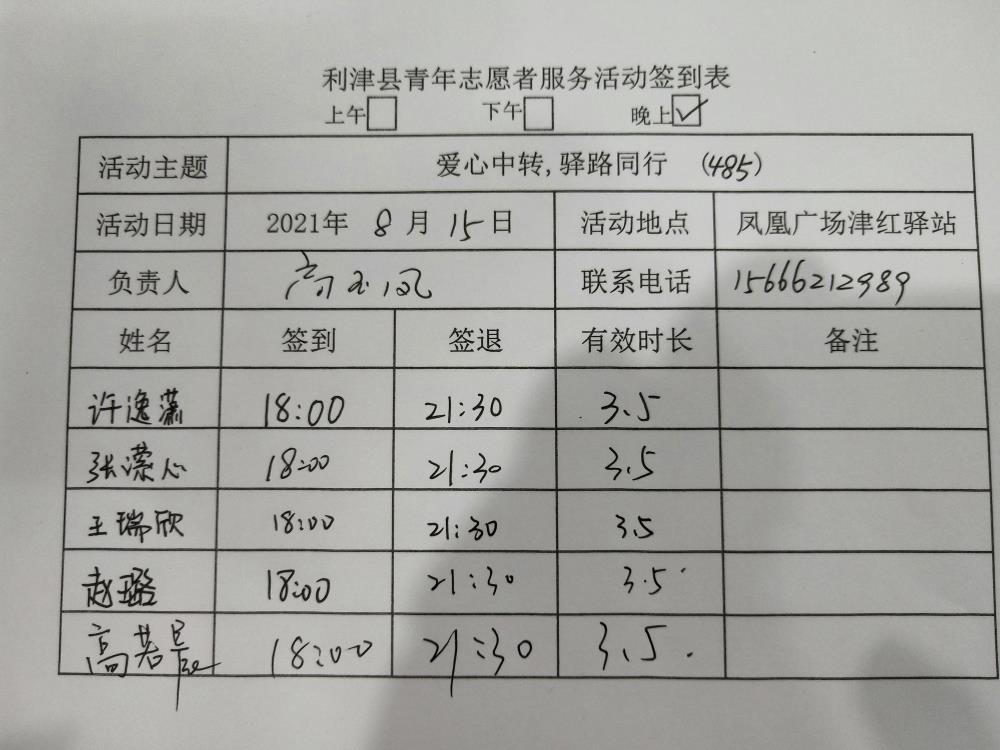 利津县青年志愿者服务活动签到表
上午 下午 晚上 ✓
活动主题 爱心中转,驿路同行 (485)
活动日期 2021年 8 月 15 日 活动地点 凤凰广场津红驿站
负责人 高玉凤 联系电话 15666212989
姓名 签到 签退 有效时长 备注
许逸潇 18:00 21:30 3.5
张濴心 18:00 21:30 3.5
王瑞欣 18:00 21:30 3.5
赵璐 18:00 21:30 3.5
高若 18:00 21:30 3.5